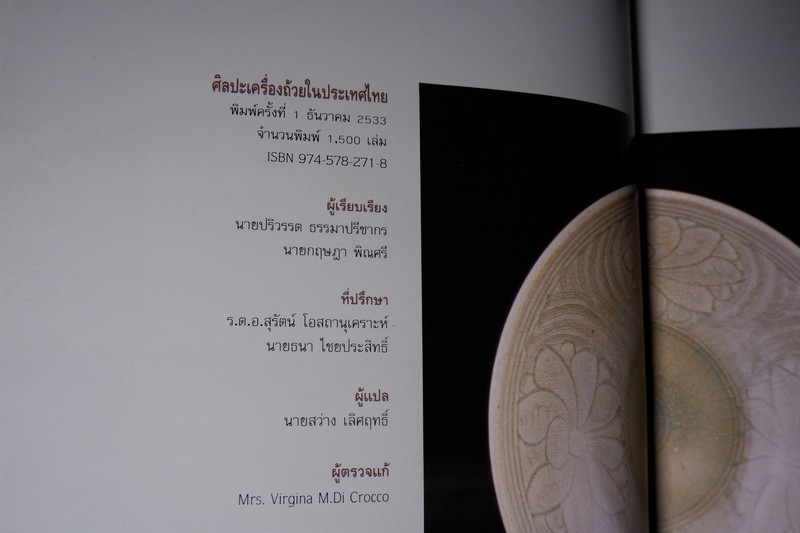 ศิลปะเครื่องถ้วยในประเทศไทย
พิมพ์ครั้งที่ 1 ธันวาคม 2533
จำนวนพิมพ์ 1,500 เล่ม
ISBN 974-578-271-8
ผู้เรียบเรียง
นายปริวรรต ธรรมาปรีชากร
นายกฤษฎา พิณศรี
ที่ปรึกษา
ร.ต.อ.สุรัตน์ โอสถานุเคราะห์
นายธนา ไชยประสิทธิ์
ผู้แปล
นายสว่าง เลิศฤทธิ์
ผู้ตรวจแก้
Mrs. Virgina M.Di Crocco